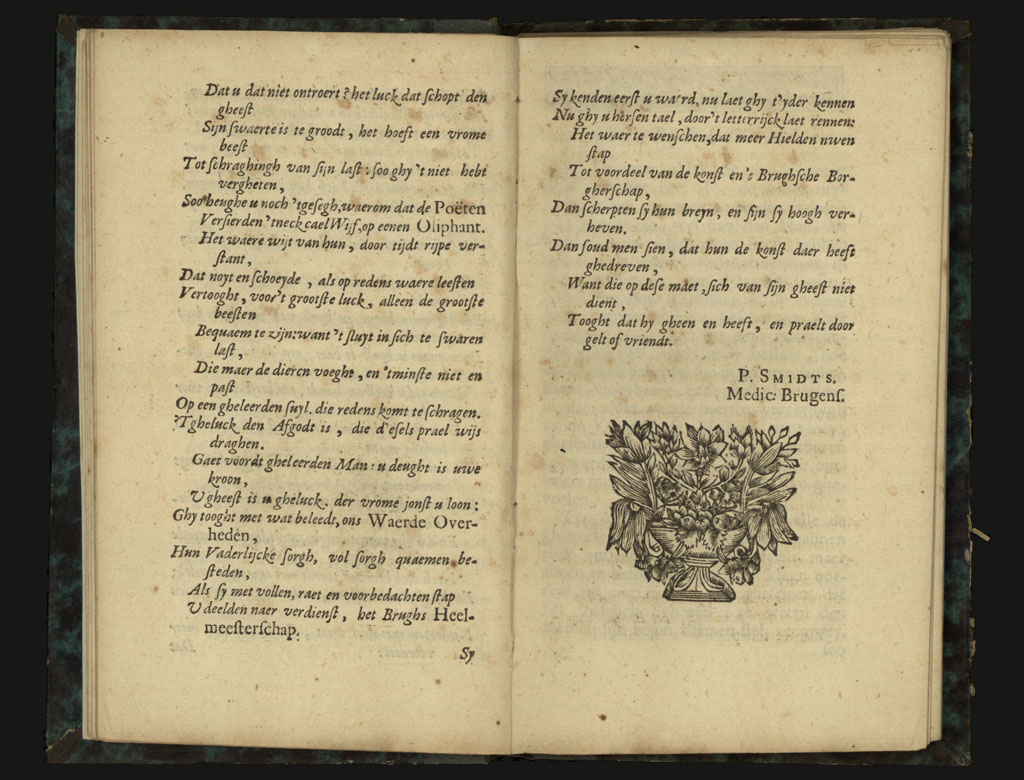 Dat u dat niet ontroert? het luck dat ſchopt den
gheeſt
Sijn ſwaerte is te groodt, het hoeft een vrome
beeſt
Tot ſchraghingh van ſijn laſt: ſoo ghy 't niet hebt
vergheten,
Soo heughe u noch 'tgeſegh, waerom dat de Poëten
Verſierden 'tneck cael Wijf, op eenen Oliphant.
Het waere wijt van hun, door tijdt rijpe ver-
ſtant,
Dat noyt en ſchoeyde, als op redens waere leeſten
Vertooght, voor't grootſte luck, alleen de grootſte
beeſten
Bequaem te zijn: want 't ſluyt in ſich te ſwaren
laſt,
Die maer de dieren voeght, en 'tminſte niet en
paſt
Op een gheleerden ſuyl. die redens komt te ſchragen.
'T gheluck den Afgodt is, die d'eſels prael wijs
draghen.
Gaet voordt gheleerden Man: u deught is uwe
kroon,
U gheeſt is u gheluck. der vrome jonſt u loon:
Ghy tooght met wat beleedt, ons Waerde Over-
heden,
Hun Vaderlijcke ſorgh, vol ſorgh quaemen be-
ſteden,
Als ſy met vollen, raet en voorbedachten ſtap
U deelden naer verdienſt, het Brughs Heel-
meeſterſchap.
Sy
Sy kenden eerſt u waerd, nu laet ghy t'yder kennen
Nu ghy u herſen tael, door't letterrijck laet rennen:
Het waer te wenſchen, dat meer Hielden uwen
ſtap
Tot voordeel van de konſt en's Brughſche Bor-
gherſchap,
Dan ſcherpten ſy hun breyn, en ſijn ſy hoogh ver-
heven.
Dan ſoud men ſien, dat hun de konſt daer heeft
ghedreven,
Want die op deſe maet, ſich van ſijn gheeſt niet
dient,
Tooght dat hy gheen en heeft, en praelt door
gelt of vriendt.
P. SMIDTS.
Medic: Brugenſ.